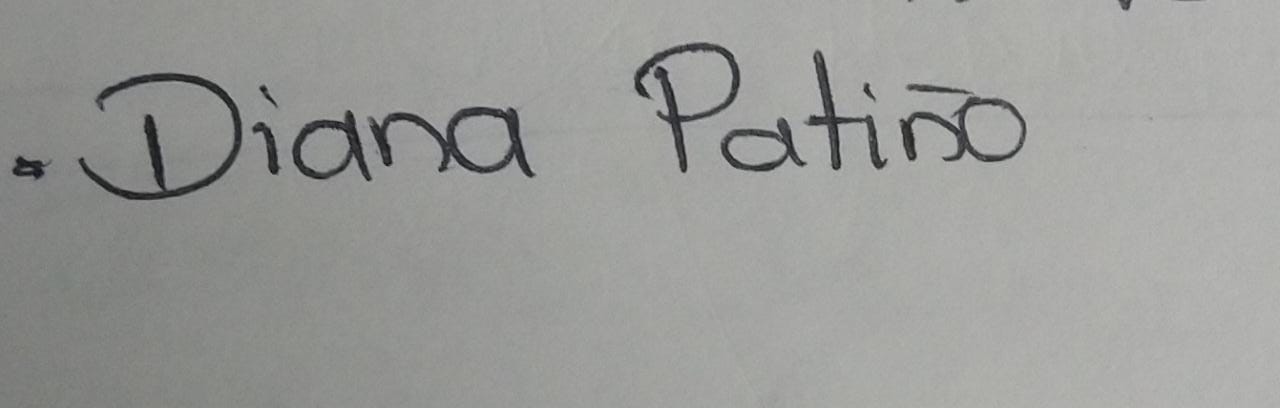 . Diana Patiño